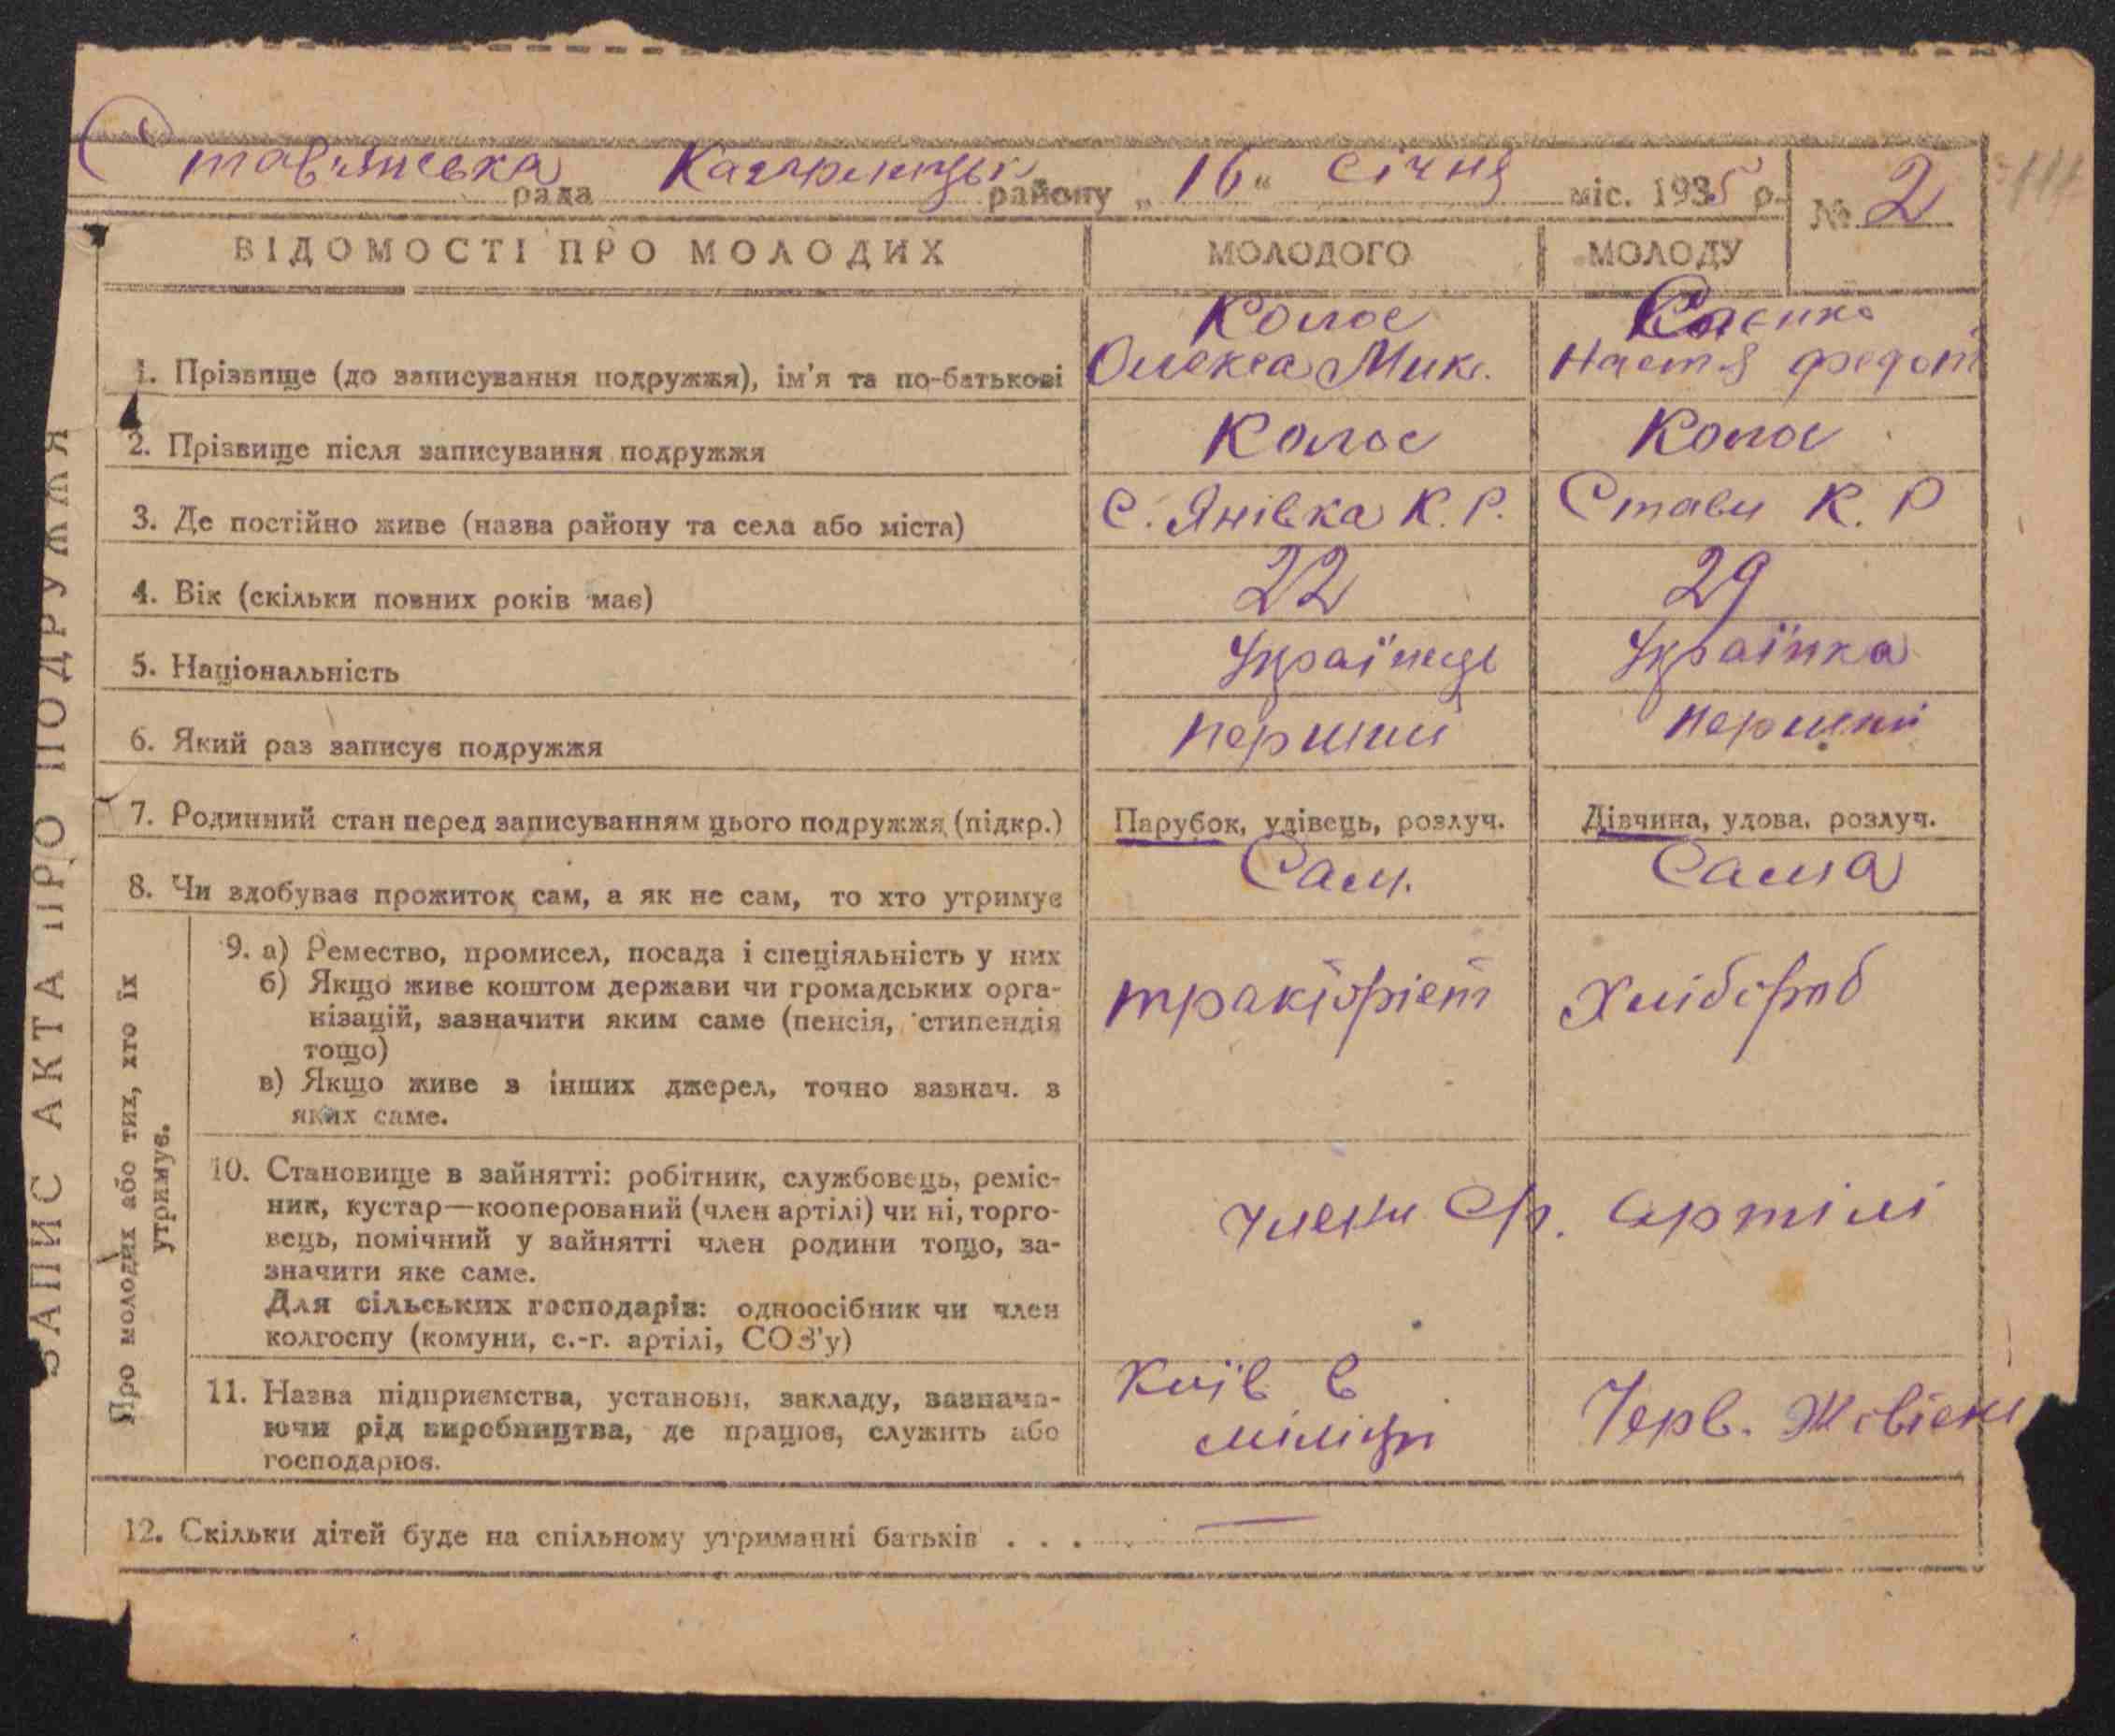 Ставянська рада Кагарлицьк району „16“ Січня міс. 1935 р. № 2
ВІДОМОСТІ ПРО МОЛОДИХ МОЛОДОГО МОЛОДУ
ЗАПИС АКТА ПРО ПОДРУЖЖЯ
Колос Саєнко
1. Прізвище (до записування подружжя), ім'я та по-батькові Олекса Мик. Настя Федот
2. Прізвище після записування подружжя Колос Колос
3. Де постійно живе (назва району та села або міста) С. Янівка К. Р. Стави К. Р
4. Вік (скільки повних років має) 22 29
5. Національність Українець Українка
6. Який раз записує подружжя перший перший
7. Родинний стан перед записуванням цього подружжя (підкр.) Парубок, удівець, розлуч. Дівчина, удова, розлуч.
8. Чи здобуває прожиток сам, а як не сам, то хто утримує Сам. Сама
Про молодих або тих, хто їх
утримує.
9. а) Ремество, промисел, посада і спеціяльність у них
б) Якщо живе коштом держави чи громадських орга-
нізацій, зазначити яким саме (пенсія, стипендія
тощо)
в) Якщо живе з інших джерел, точно зазнач. з
яких саме.
тракторіст Хлібороб
10. Становище в зайнятті: робітник, службовець, реміс-
ник, кустар—кооперований (член артілі) чи ні, торго-
вець, помічний у зайнятті член родини тощо, за-
значити яке саме.
Для сільських господарів: одноосібник чи член
колгоспу (комуни, с.-г. артілі, СОЗ'у)
члени артілі
11. Назва підприємства, установи, закладу, зазнача-
ючи рід виробництва, де працює, служить або
господарює.
Київ в
міліції Черв. Жовтень
12. Скільки дітей буде на спільному утриманні батьків . . . —